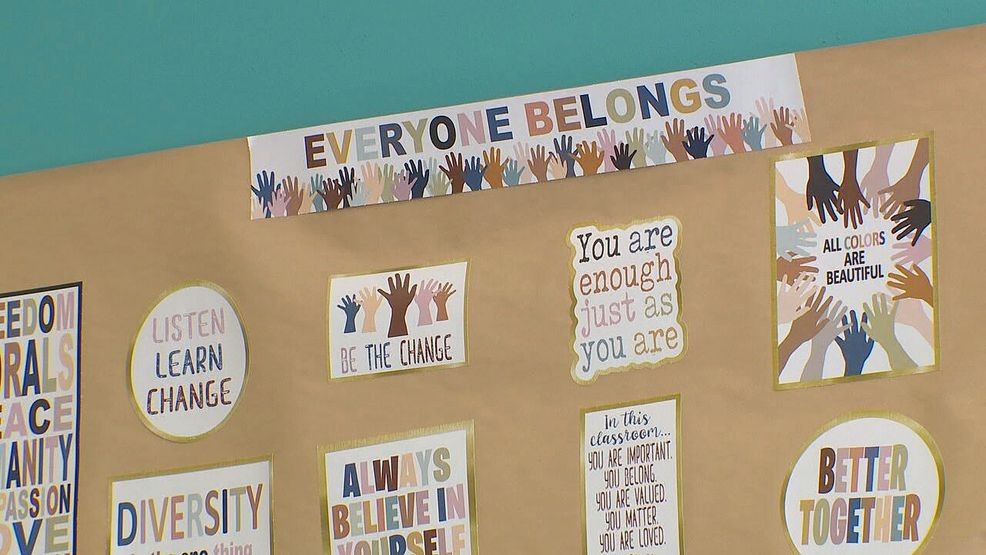 EVERYONE BELONGS
You are
enough
just as
you are
ALL COLORS
ARE
BEAUTIFUL
BE THE CHANGE
LISTEN
LEARN
CHANGE
EEDOM
ORALS
EACE
MANITY
PASSION
OVE
DIVERSITY
the one thing
ALWAYS
BELIEVE IN
YOURSELF
In this
classroom...
YOU ARE IMPORTANT.
YOU BELONG.
YOU ARE VALUED.
YOU MATTER.
YOU ARE LOVED.
BETTER
TOGETHER